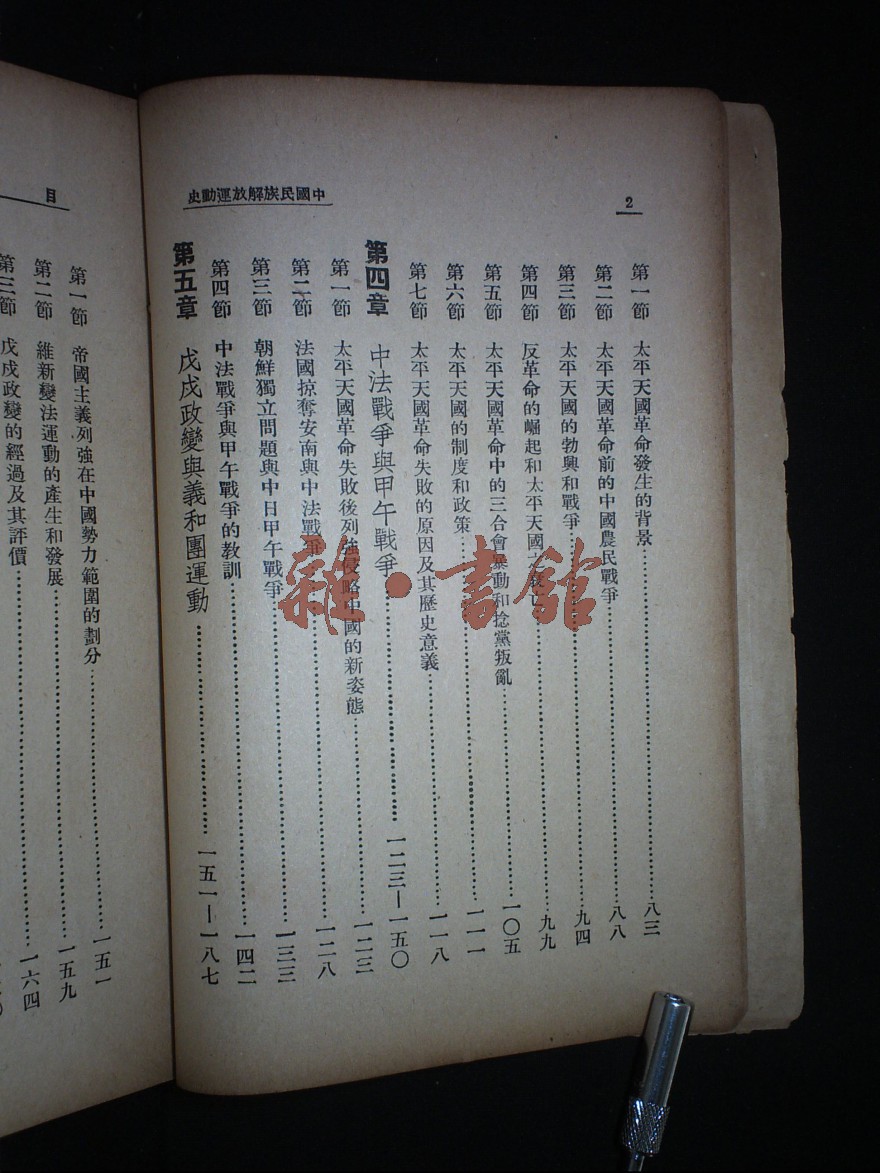 2
中國民族解放運動史
第一節 太平天國革命發生的背景……八三
第二節 太平天國革命前的中國農民戰爭……八八
第三節 太平天國的勃興和戰爭……九四
第四節 反革命的崛起和太平天國之……九九
第五節 太平天國革命中的三合會暴動和捻黨叛亂……一〇五
第六節 太平天國的制度和政策……一一一
第七節 太平天國革命失敗的原因及其歷史意義……一一八
第四章 中法戰爭與甲午戰爭……一二三—一五〇
第一節 太平天國革命失敗後列強侵略中國的新姿態……一二三
第二節 法國掠奪安南與中法戰爭……一二八
第三節 朝鮮獨立問題與中日甲午戰爭……一三三
第四節 中法戰爭與甲午戰爭的教訓……一四二
第五章 戊戌政變與義和團運動……一五一—一八七
目
第一節 帝國主義列強在中國勢力範圍的劃分……一五一
第二節 維新變法運動的產生和發展……一五九
第三節 戊戌政變的經過及其評價……一六四
雜·書館